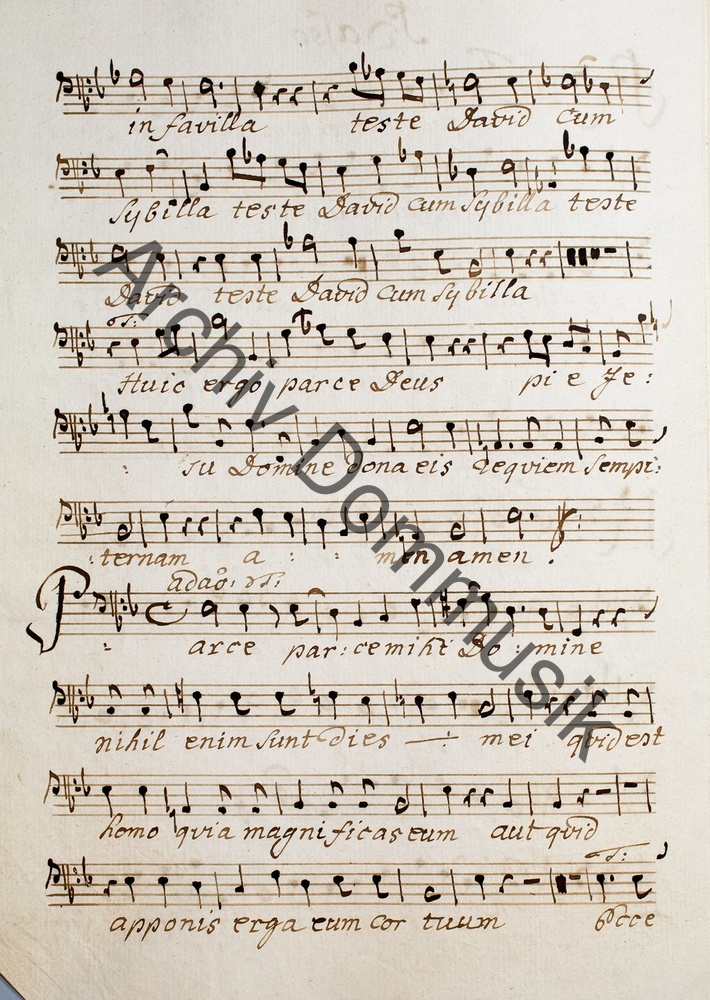 in favilla teste David cum
Sybilla teste David cum Sybilla teste
David teste David cum Sybilla
Huic ergo parce Deus pi e Je:
: su Domine dona eis requiem Sempi:
:ternam a : : men amen.
adaō:
Parce par:ce mihi Do : mine
nihil enim sunt dies mei quid est
homo quia magnificas eum aut quid
apponis erga eum cor tuum Ecce
Archiv Dommusik